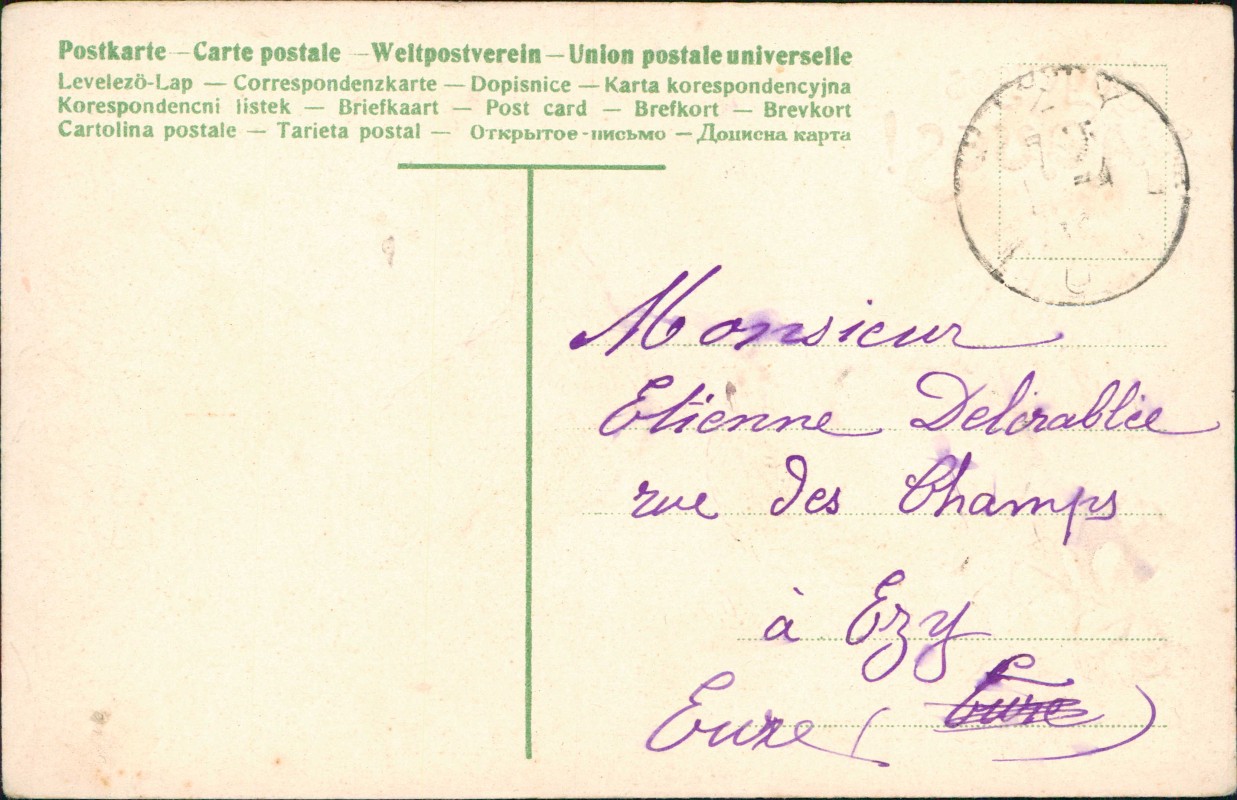 Postkarte — Carte postale — Weltpostverein — Union postale universelle
Levelezö-Lap — Correspondenzkarte — Dopisnice — Karta korespondencyjna
Korespondencni listek — Briefkaart — Post card — Brefkort — Brevkort
Cartolina postale — Tarieta postal — Открытое-письмо — Дописна карта
Monsieur
Etienne
rue des Champs
à Ezy
Eure (
Eure )